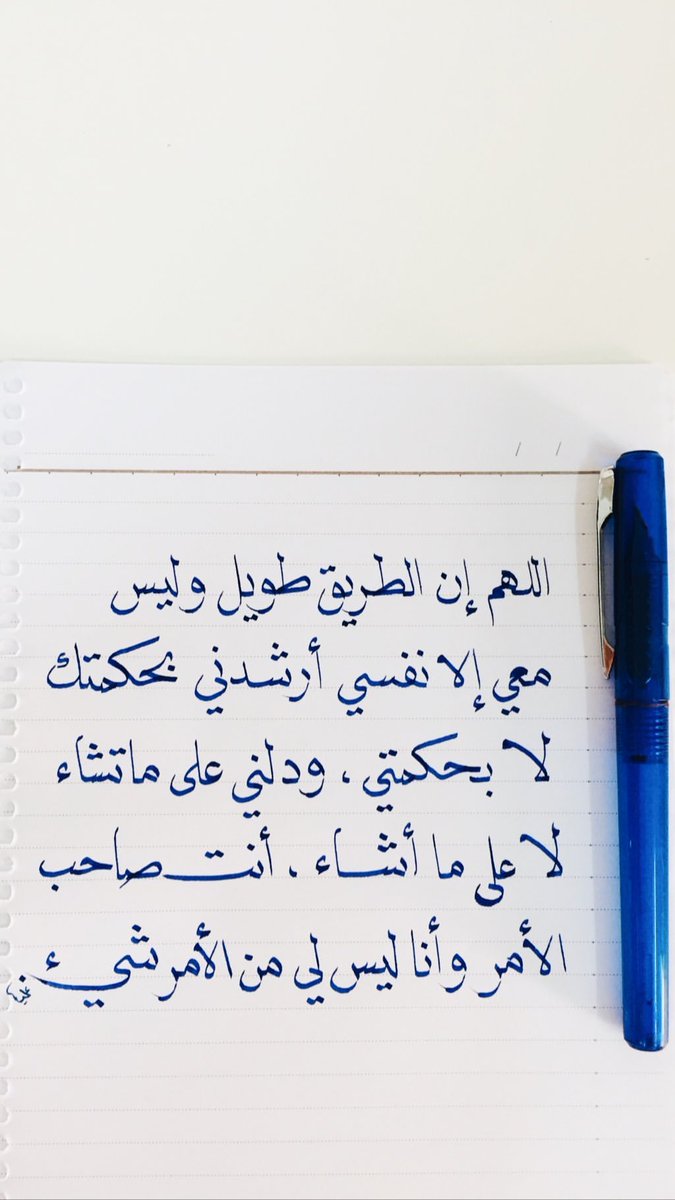 اللهم إن الطريق طويل وليس
معي إلا نفسي أرشدني بحكمتك
لا بحكمتي ، ودلني على ماتشاء
لا على ما أشاء ، أنت صاحب
الأمر وأنا ليس لي من الأمر شيء